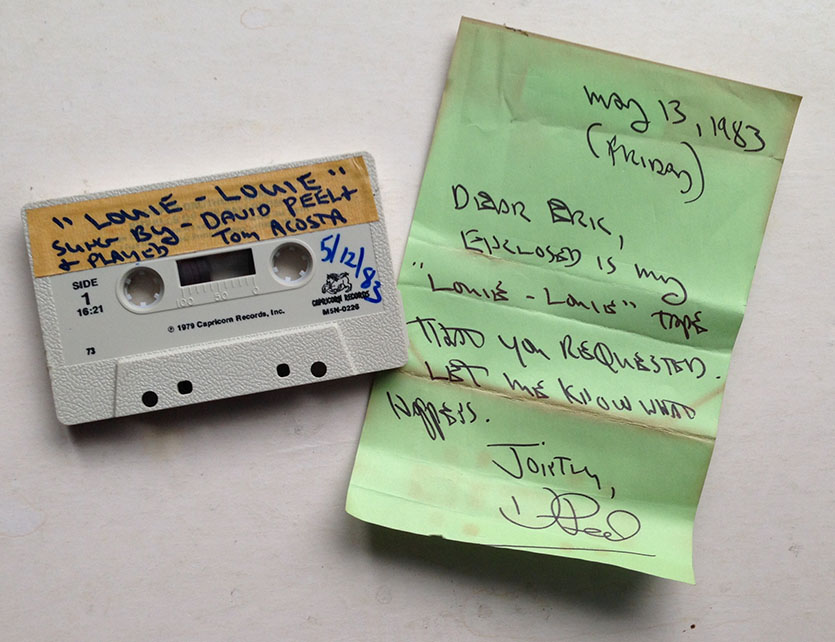 "LOUIE - LOUIE"
SUNG BY - DAVID PEEL +
+ PLAYED TOM ACOSTA
5/12/83
SIDE
1
16:21
100 50 0
CAPRICORN RECORDS
M5N-0226
℗ 1979 Capricorn Records, Inc.
73
May 13, 1983
(FRIDAY)
DEAR ERIC,
ENCLOSED IS my
"LOUIE - LOUIE" TAPE
THAT you REQUESTED.
LET ME KNOW WHAT
HAPPENS.
JOINTLY,
D Peel